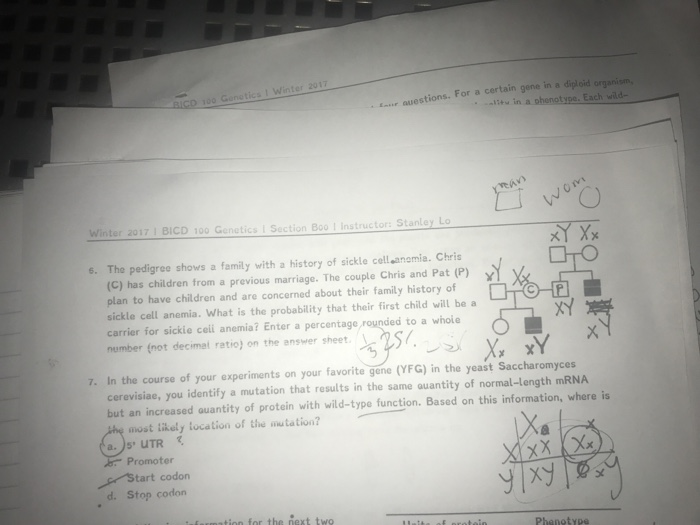 BICD 100 Genetics | Winter 2017
four questions. For a certain gene in a diploid organism,
in a phenotype. Each wild-
man wom
Winter 2017 | BICD 100 Genetics | Section B00 | Instructor: Stanley Lo
6. The pedigree shows a family with a history of sickle cell anemia. Chris
(C) has children from a previous marriage. The couple Chris and Pat (P)
plan to have children and are concerned about their family history of
sickle cell anemia. What is the probability that their first child will be a
carrier for sickle cell anemia? Enter a percentage rounded to a whole
number (not decimal ratio) on the answer sheet.
1/3 25%
xY Xx
xY Xx
C P
XY
xY
Xx xY
7. In the course of your experiments on your favorite gene (YFG) in the yeast Saccharomyces
cerevisiae, you identify a mutation that results in the same quantity of normal-length mRNA
but an increased quantity of protein with wild-type function. Based on this information, where is
the most likely location of the mutation?
a. 5' UTR ?
b. Promoter
c. Start codon
d. Stop codon
X x
X XX Xx
y XY xy
for the next two
Units of protein Phenotype